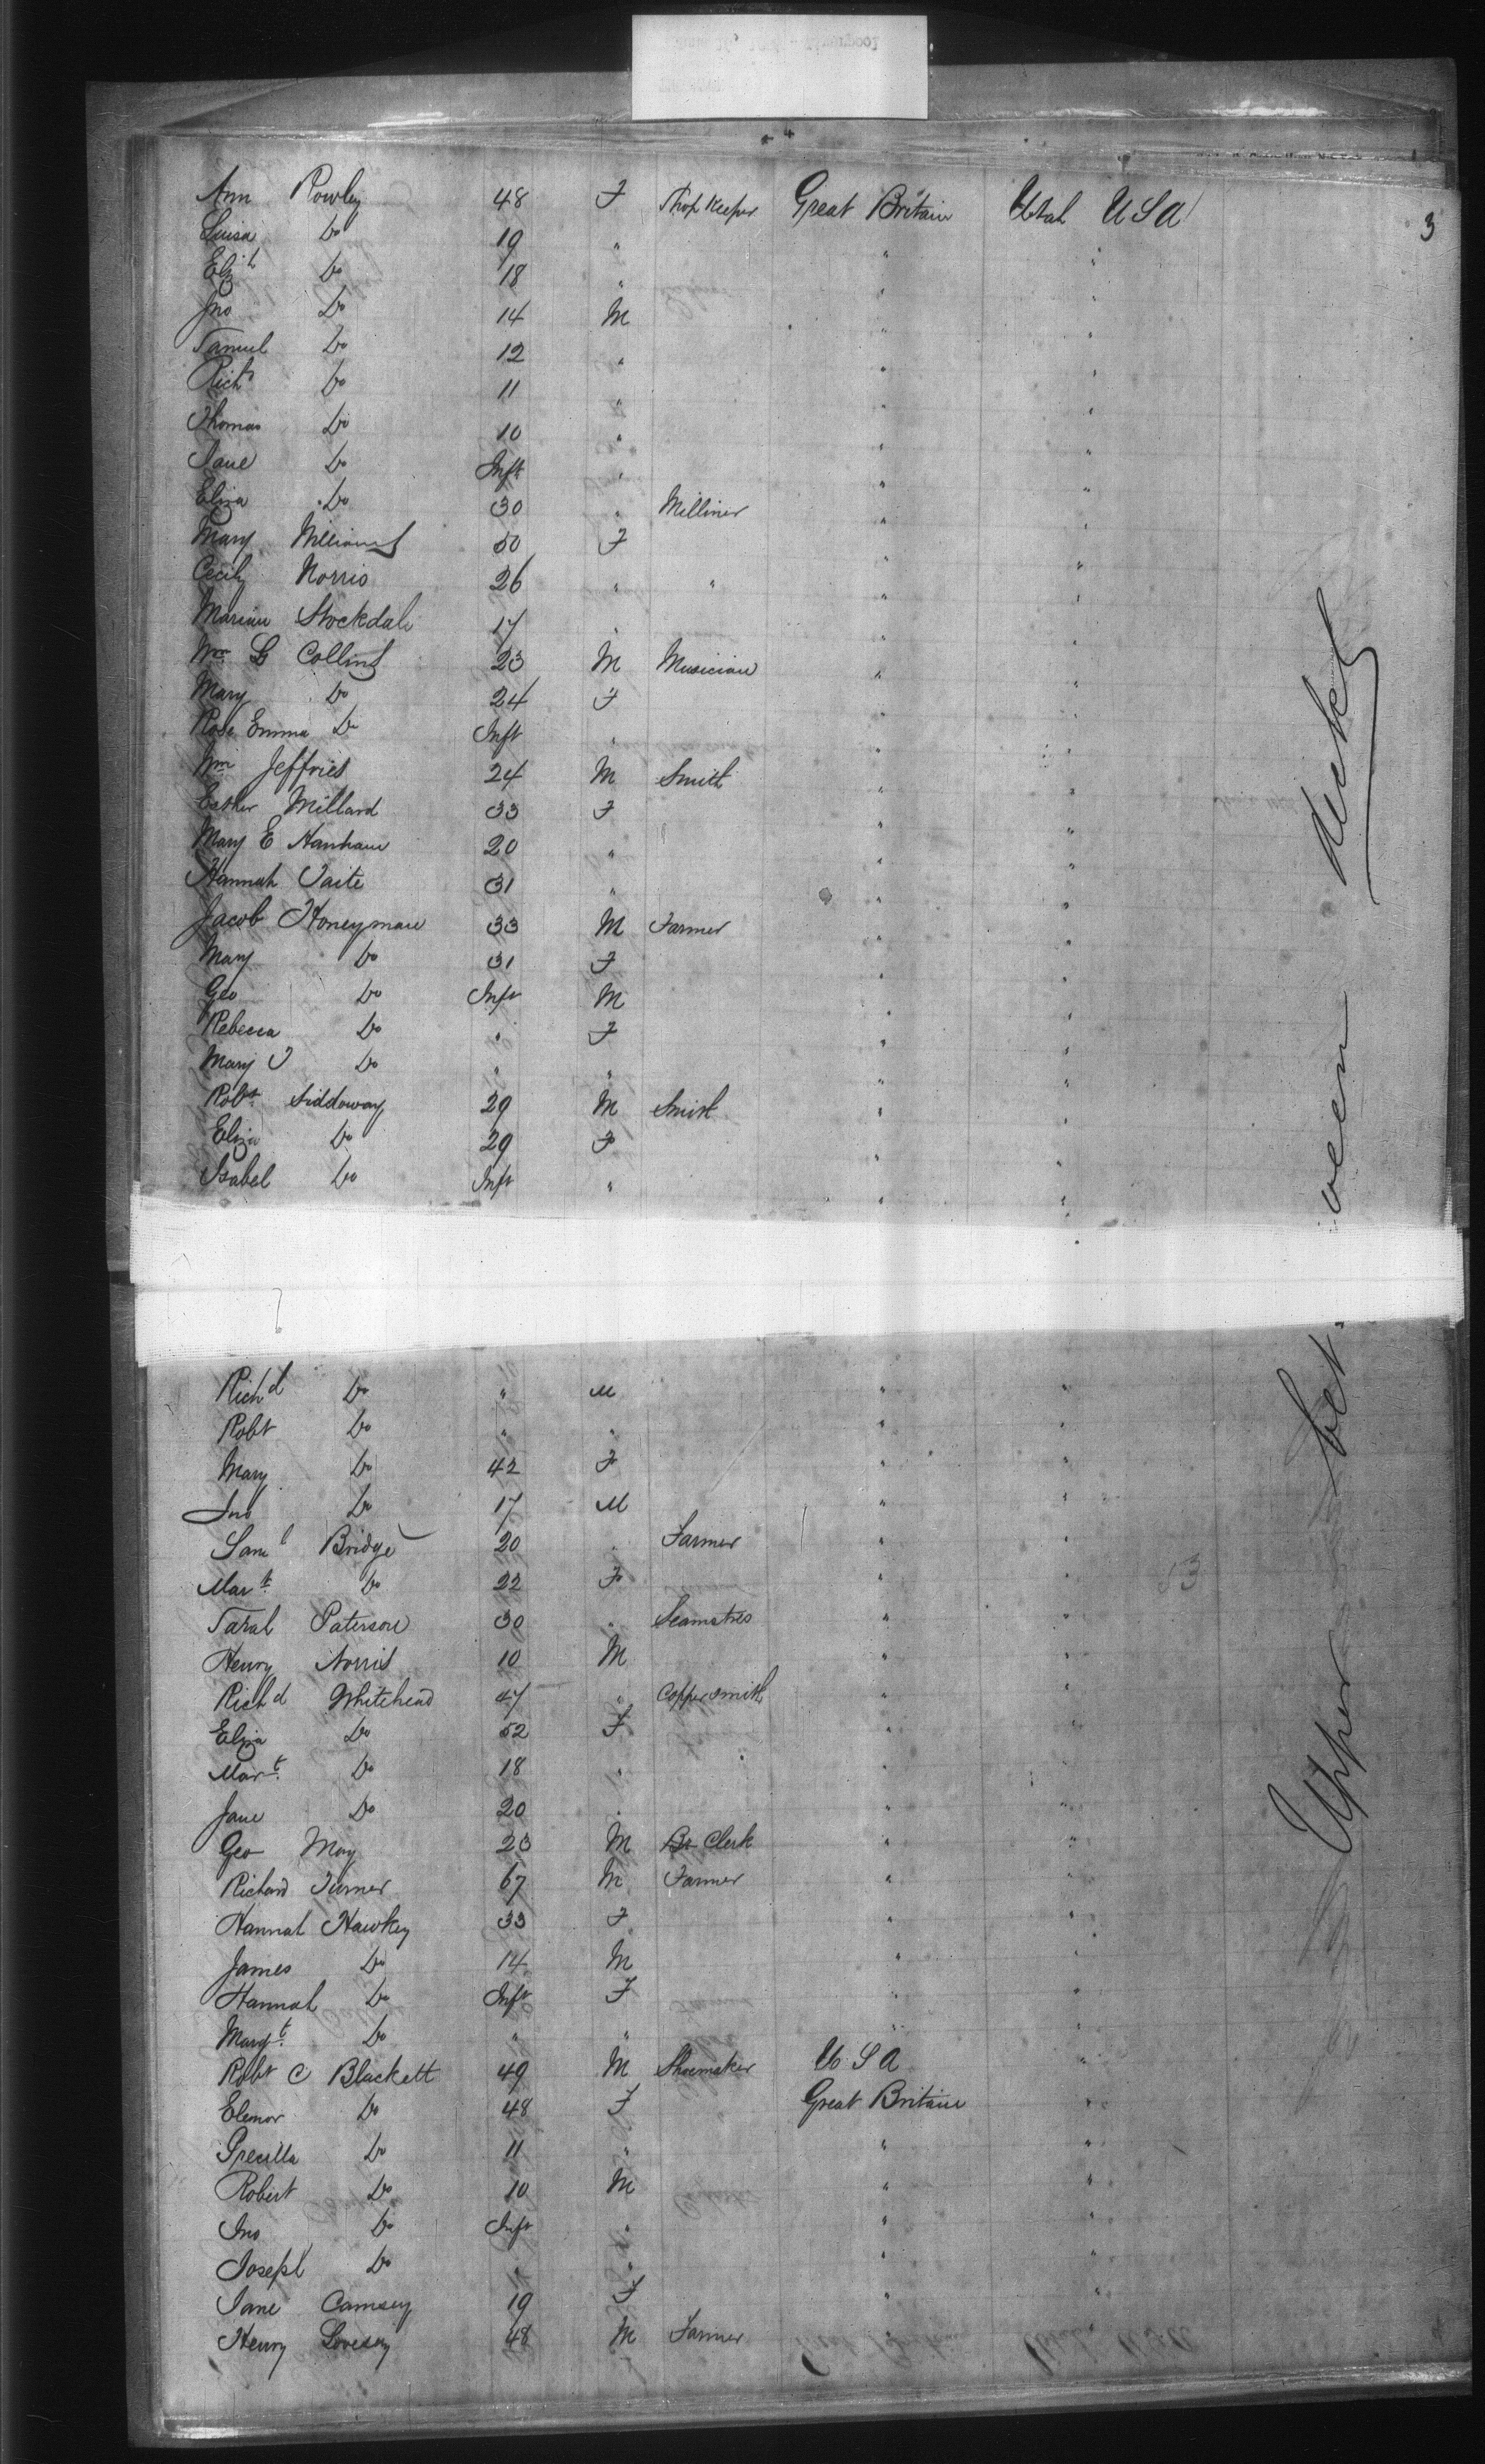 Ann Rowley 48 F Shop Keeper Great Britain Utah USA 3
Luisa Do 19 " " "
Elizth Do 18 " " "
Jno Do 14 M " "
Samuel Do 12 " " "
Richd Do 11 " " "
Thomas Do 10 " " "
Jane Do Inft " " "
Eliza Do 30 " Milliner " "
Mary Williams 50 F " "
Cecily Norris 26 " " " "
Marian Stockdale 17 " " "
Wm G Collins 23 M Musician " "
Mary Do 24 F " "
Rosa Emma Do Inft " " "
Wm Jeffries 24 M Smith " "
Esther Millard 33 F " "
Mary E Hanham 20 " " "
Hannah Taite 31 " " "
Jacob Honeyman 33 M Farmer " "
Mary Do 31 F " "
Geo Do Inft M " "
Rebecca Do " F " "
Mary J Do " " " "
Robt Siddoway 29 M Smith " "
Eliza Do 29 F " "
Isabel Do Inft " " "
Richd Do " M " "
Robt Do " " " "
Mary Do 42 F " "
Jno Do 17 M " "
Saml Bridge 20 " Farmer " "
Mart Do 22 F " "
Sarah Paterson 30 " Seamstres " "
Henry Norris 10 M " "
Richd Whitehead 47 " Coppersmith " "
Eliza Do 52 F " "
Mart Do 18 " " "
Jane Do 20 " " "
Geo May 23 M Clerk " "
Richard Turner 67 M Farmer " "
Hannah Hawkey 33 F " "
James Do 14 M " "
Hannah Do Inft F " "
Margt Do " " " "
Robt C Blackett 49 M Shoemaker U S A "
Elenor Do 48 F Great Britain "
Precilla Do 11 " " "
Robert Do 10 M " "
Jno Do Inft " " "
Joseph Do " " " "
Jane Camsey 19 F " "
Henry Lovesey 48 M Farmer
Upper between decks